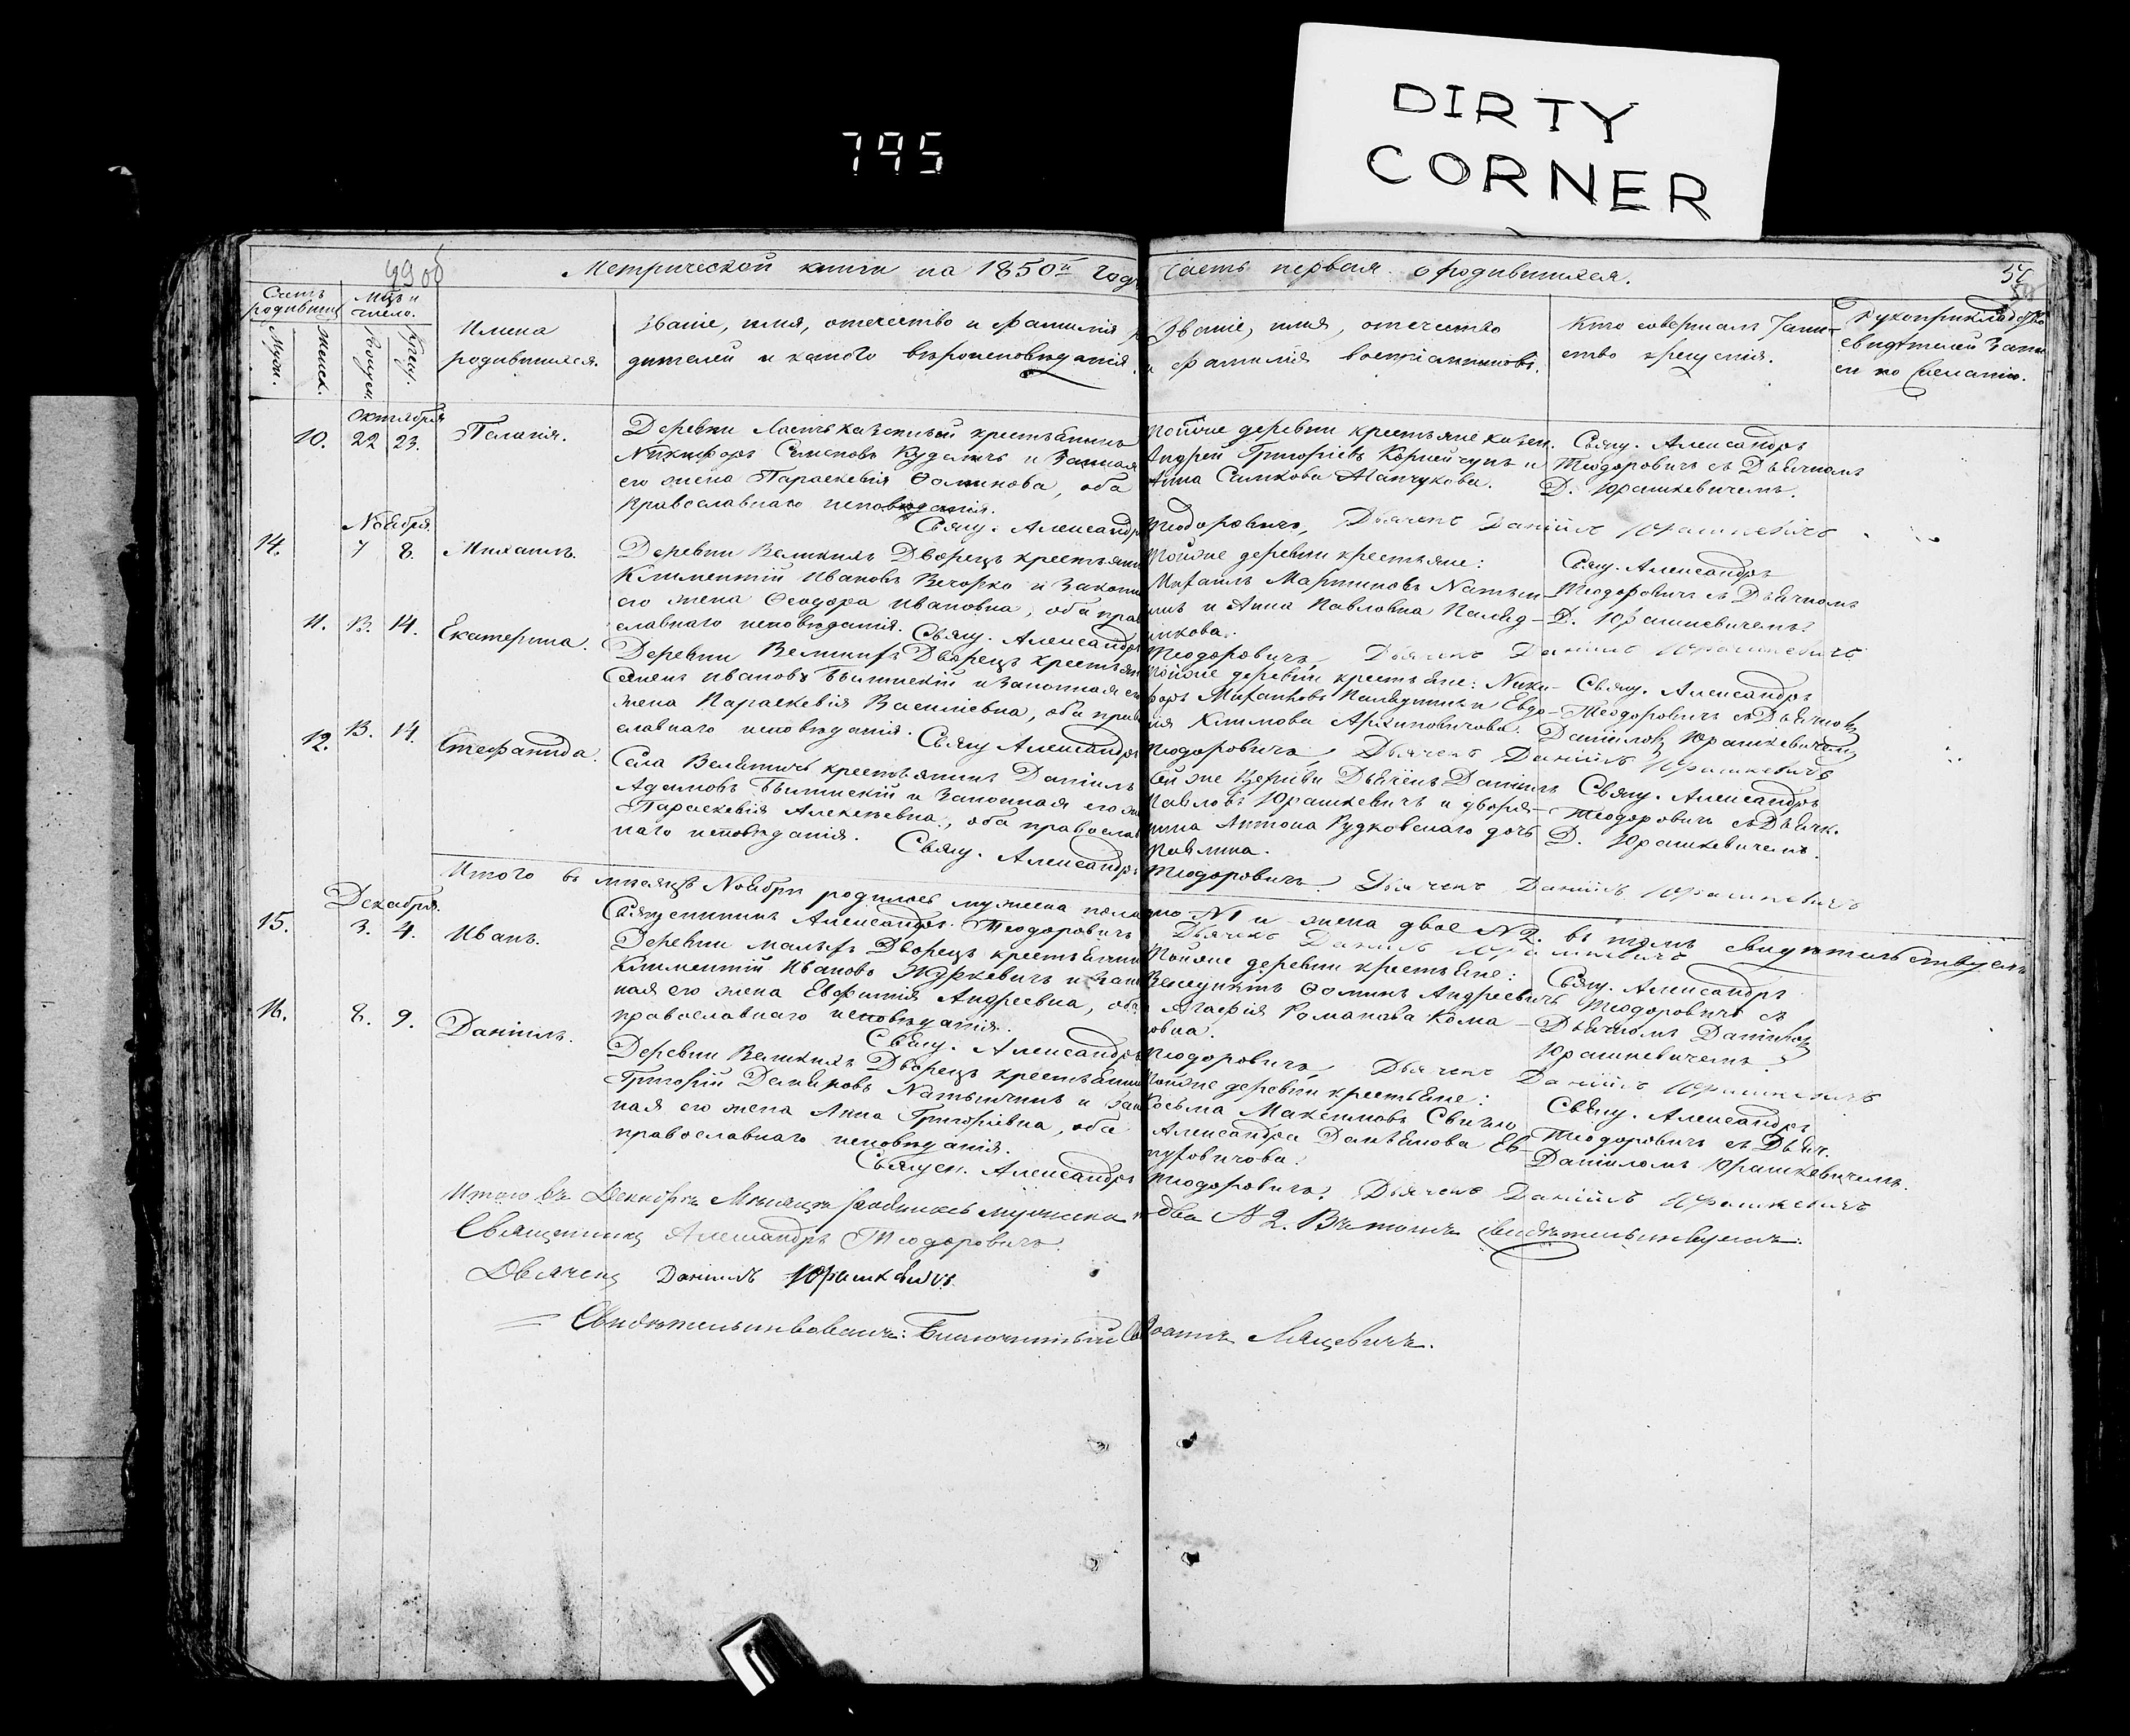 DIRTY
CORNER
795
99 об
Метрической книги на 1850й годъ часть первая о родившихся.
Счетъ родившихся
Муж.
Женск.
Мцъ и число.
Рожден.
Крещ.
Имена
родившихся.
Званіе, имя, отчество и фамилія ро
дителей и какого вѣроисповѣданія.
Званіе, имя, отчество
и фамилія воспріемниковъ.
Кто совершалъ Таин-
ство крещенія.
Рукоприкладство
свидѣтелей запи
си по желанію.
Октября
10. 22 23. Пелагія.
казенный крестьянинъ
Никифоръ Семеновъ и законная
его жена Параскевія Ѳоминова, оба
православнаго исповѣданія.
Свящ. Александръ Теодоровичъ, Дьячекъ Даніилъ Юрашкевичъ
Тойже деревни крестьяне казен.
Андрей Григорьевъ Корнейчукъ и
Анна
Свящ. Александръ
Теодоровичъ съ Дьячкомъ
Д. Юрашкевичемъ.
Ноября
14. 7 8. Михаилъ.
Деревни Великихъ Дворецъ крестьянинъ
Климентій Ивановъ Вечорко и законная
его жена Ѳеодора Ивановна, оба право
славнаго исповѣданія.
Свящ. Александръ Теодоровичъ, Дьячекъ Даніилъ Юрашкевичъ
Тойже деревни крестьяне:
Михаилъ Мартиновъ
и Анна Павловна
Свящ. Александръ
Теодоровичъ съ Дьячкомъ
Д. Юрашкевичемъ.
11. 13. 14. Екатерина.
Деревни Великихъ Дворецъ крестьянинъ
Семенъ Ивановъ Былинскій и законная его
жена Параскевія Василіевна, оба право
славнаго исповѣданія.
Свящ Александръ Теодоровичъ, Дьячекъ Даніилъ Юрашкевичъ
Тойже деревни крестьяне: Ники-
форъ и Евдо-
кія Климова
Свящ. Александръ
Теодоровичъ съ Дьячкомъ
Даніиломъ Юрашкевичемъ
12. 13. 14. Стефанида.
Села крестьянинъ Даніилъ
Адамовъ Былинскій и законная его жена
Параскевія Алексѣевна, оба православ
наго исповѣданія.
Свящ. Александръ Теодоровичъ. Дьячекъ Даніилъ Юрашкевичъ
Той же Церкви Дьячекъ Даніилъ
Павловъ Юрашкевичъ и дворя-
нина Антона Рудковскаго дочь
Павлина.
Свящ. Александръ
Теодоровичъ съ Дьячк.
Д. Юрашкевичемъ.
Итого въ мѣсяцѣ Ноябрѣ родилось мужеска пола одно N1 и женска двое N2. въ томъ свидѣтельствуемъ
Священникъ Александръ Теодоровичъ Дьячекъ Даніилъ Юрашкевичъ
Декабря.
15. 3. 4. Иванъ.
Деревни малыхъ Дворецъ крестьянинъ
Климентій Ивановъ Журкевичъ и закон
ная его жена Евфимія Андреевна, оба
православнаго исповѣданія.
Свящ. Александръ Теодоровичъ, Дьячекъ Даніилъ Юрашкевичъ
Тойже деревни крестьяне:
Ѳоминъ Андреевичъ
Агафія Романова
Свящ. Александръ
Теодоровичъ съ
Дьячкомъ Даніиломъ
Юрашкевичемъ.
16. 8. 9. Даніилъ.
Деревни Великихъ Дворецъ крестьянинъ
Григорій и закон
ная его жена Анна Григоріевна, оба
православнаго исповѣданія.
Священ. Александръ Теодоровичъ. Дьячекъ Даніилъ Юрашкевичъ
Тойже деревни крестьяне:
Косьма Максимовъ
Александра
Свящ. Александръ
Теодоровичъ съ Дьяч.
Даніиломъ Юрашкевичемъ.
Итого въ Декабрѣ Мѣсяцѣ родилось мужеска два N 2. Въ томъ свидѣтельствуемъ:
Священникъ Александръ Теодоровичъ.
Дьячекъ Даніилъ Юрашкевичъ.
Свидѣтельствовалъ: Благочинный Іоаннъ